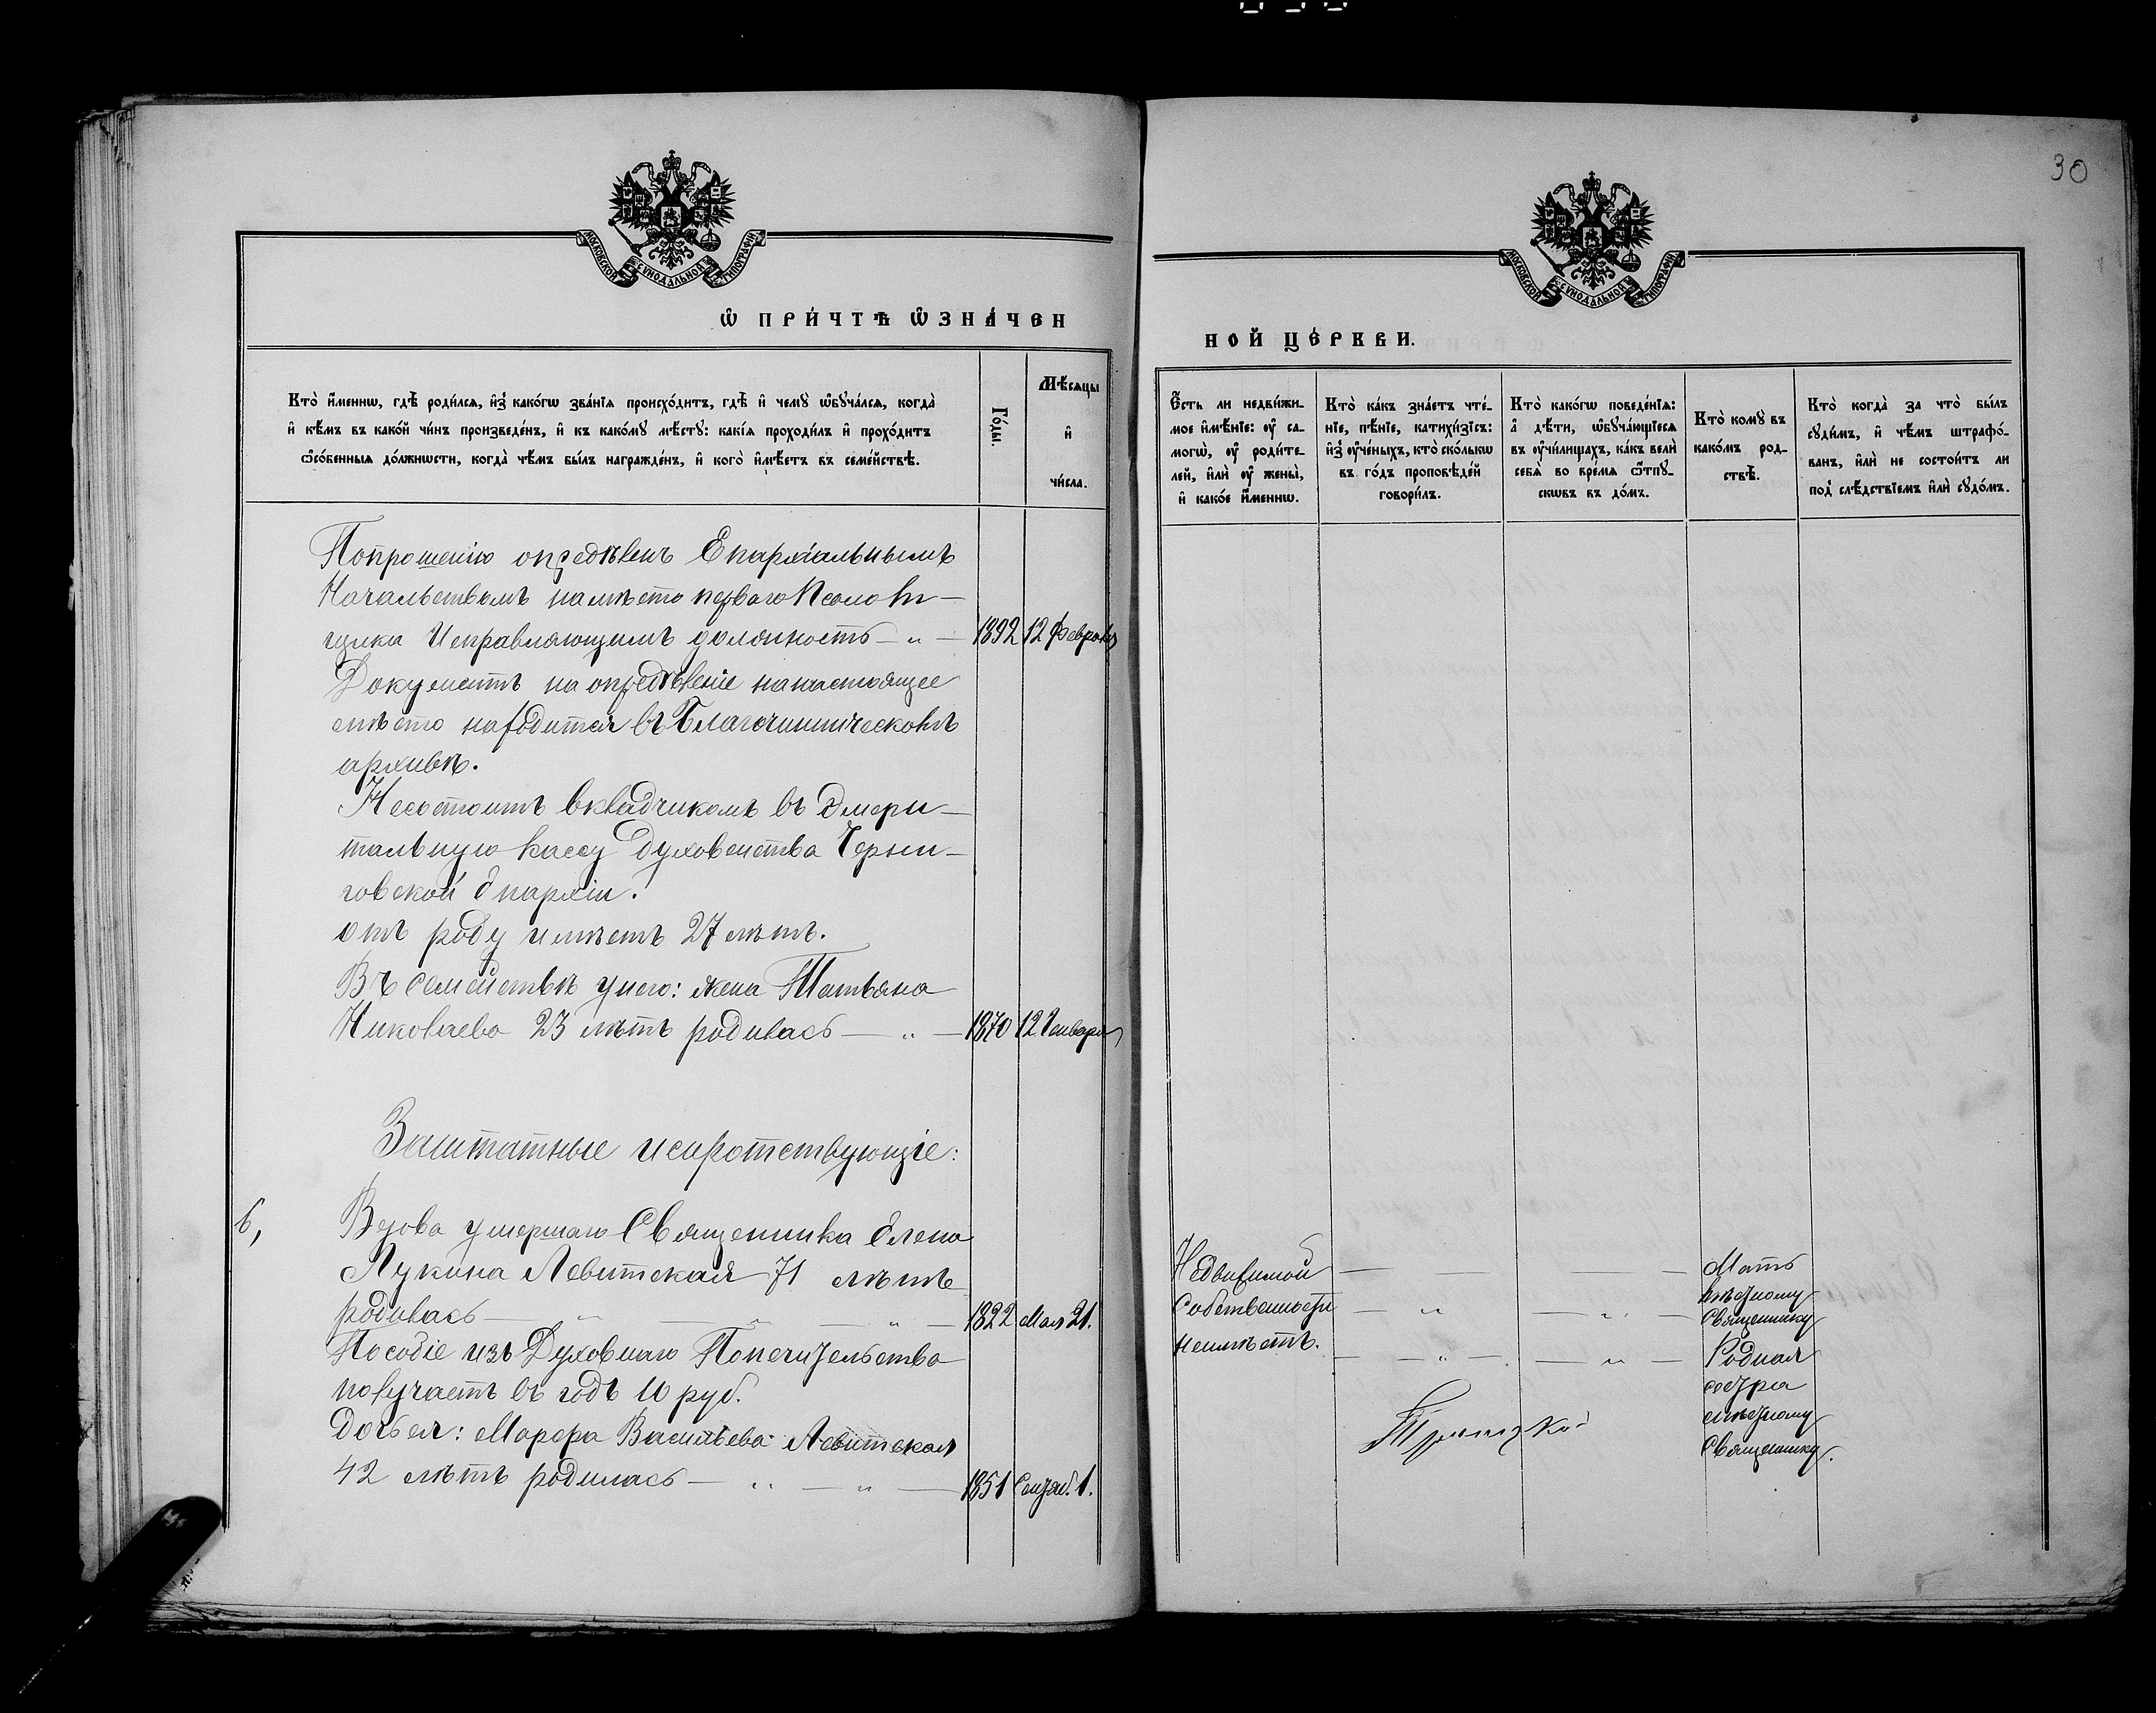 30
МОСКОВСКОЙ СѴНОДАЛЬНОЙ ТИПОГРАФІИ
МОСКОВСКОЙ СѴНОДАЛЬНОЙ ТИПОГРАФІИ
Ѡ ПРИ́ЧТѢ ѠЗНА́ЧЕН
НОЙ ЦЕ́РКВИ.
Кто̀ и҆́меннѡ, гдѣ̀ роди́лся, и҆з̾ како́гѡ зва́нїѧ происхо́дитъ, гдѣ̀ и҆ чемꙋ̀ ѡ҆бꙋча́лсѧ, когда̀
и҆ кѣ́мъ въ како́й чи́нъ произведе́нъ, и҆ къ како́мꙋ мѣ́стꙋ: какі́ѧ проходи́лъ и҆ прохо́дитъ
ѻ҆со́бенныѧ до́лжнѡсти, когда̀ чѣ́мъ бы́лъ награжде́нъ, и҆ кого̀ и҆мѣ́етъ въ семе́йствѣ.
Го́ды.
Мѣ́сѧцы
и҆
чи́сла.
Е҆́сть ли недви́жи-
мое и҆мѣ́нїе: ᲂу҆ са-
могѡ̀, ᲂу҆ роди́те-
лей, и҆лѝ ᲂу҆ жены̀,
и҆ како́е и҆́меннѡ.
Кто̀ ка́къ зна́етъ чте́-
нїе, пѣ́нїе, катихи́зїсъ:
и҆з̾ ᲂу҆че́ныхъ, кто̀ ско́лькѡ
въ го́дъ проповѣ́дей
говори́лъ.
Кто̀ како́гѡ поведе́нїѧ:
а҆ дѣ́ти, ѡ҆бꙋча́ющїесѧ
въ ᲂу҆чи́лищахъ, ка́къ велѝ
себѧ̀ во вре́мѧ ѿпꙋ-
сковъ въ до́мъ.
Кто̀ комꙋ̀ въ
како́мъ род-
ствѣ̀.
Кто̀ когда̀ за что̀ бы́лъ
сꙋди́мъ, и҆ чѣ́мъ штрафо́-
ванъ, и҆лѝ не состои́тъ ли
под̾ слѣ́дствїемъ и҆лѝ сꙋдо́мъ.
Попрошенію опредѣленъ Епархіальнымъ
Начальствомъ намѣсто перваго Псаломъ-
щика Исправляющимъ должность — „ — 1892 12 Февраля
Документъ на опредѣленіе нанастоящее
мѣсто находится въ Благочинническомъ
архивѣ.
Несостоитъ вкладчикомъ въ Эмери-
тальную кассу Духовенства Черни-
говской Епархіи.
отъ роду имѣетъ 27 лѣтъ.
Въ семействѣ унего: жена Татьяна
Николаева 23 лѣтъ родилась — „ — 1870 12 Генваря
Заштатные исиротствующіе:
6, Вдова умершаго Священника Елена
Лукина Левитская 71 лѣтъ
родилась — „ — „ — „ — 1822 Мая 21.
Пособіе изъ Духовнаго Попечительства
получаетъ въ годъ 10 руб.
Дочь ея: Марфа Васильева Левитская
42 лѣтъ родилась — „ — „ — 1851 Сентяб. 1.
Недвижимой
Собственности
неимѣетъ.
Мать
мѣстному
Священнику
Родная
сестра
мѣстному
Священнику.